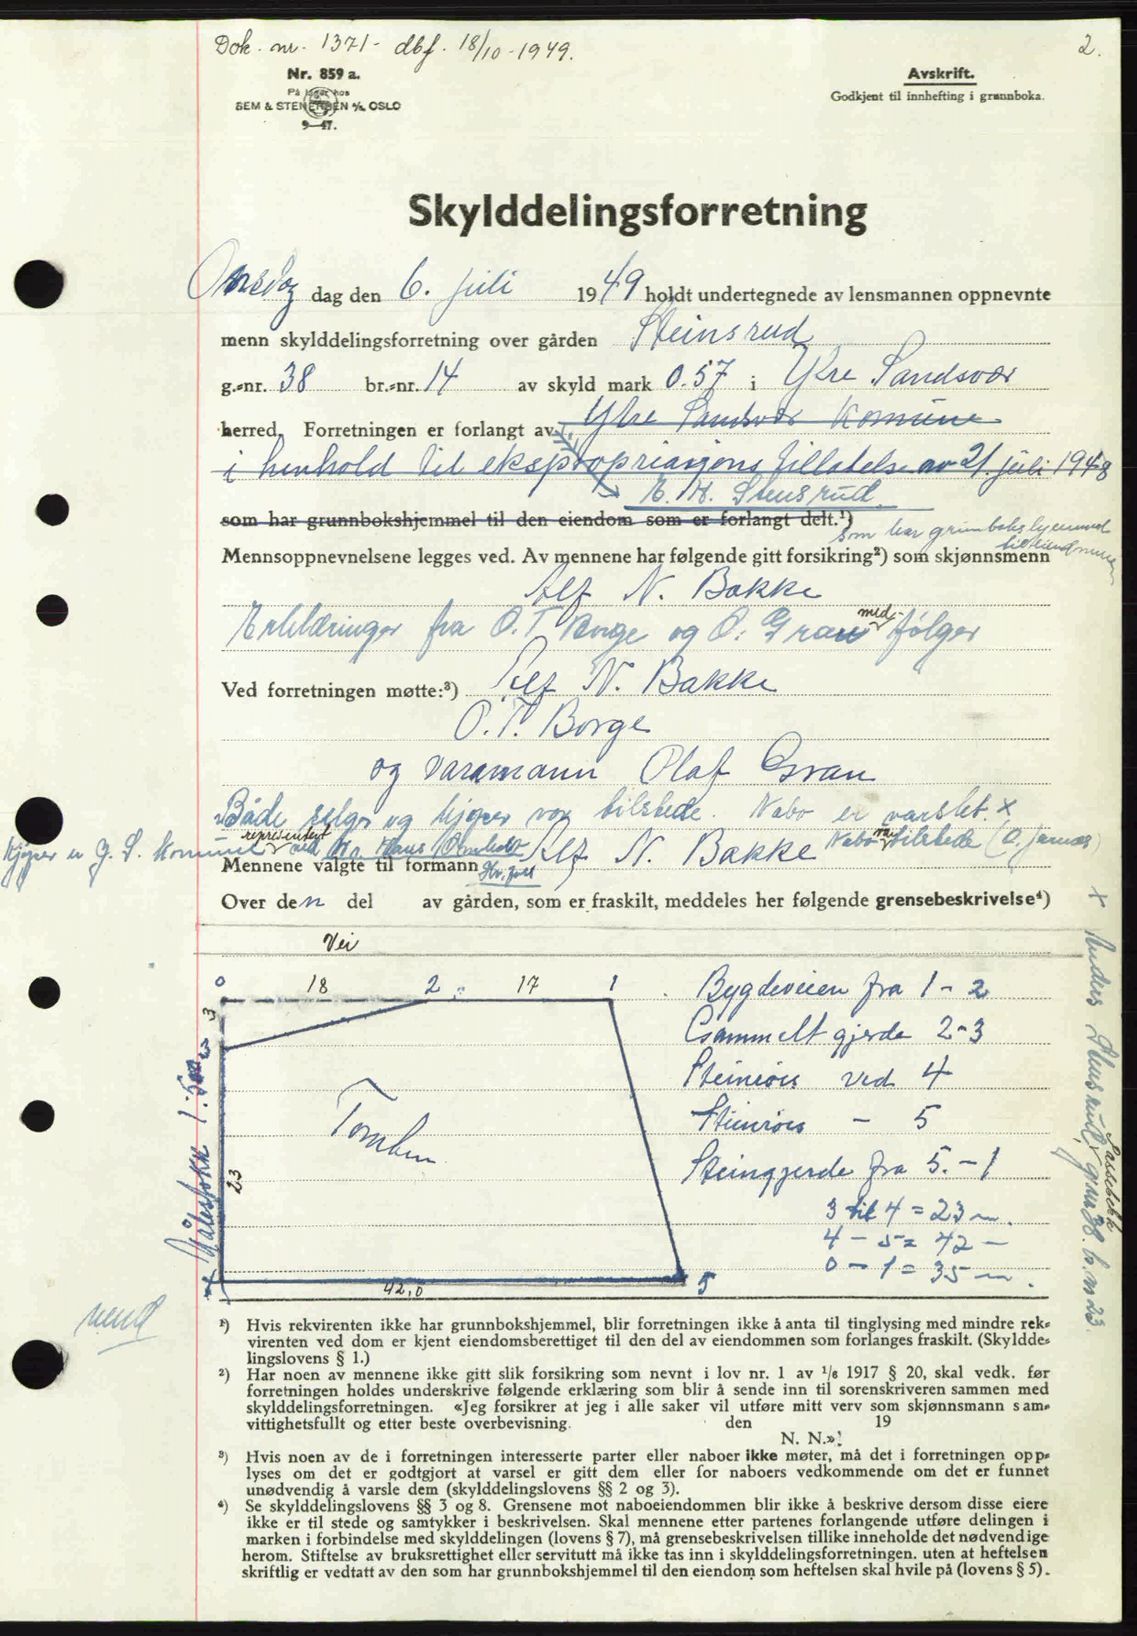 Dok. nr. 1371 - dbf. 18/10-1949.
2.
Nr. 859 a.
På lager hos
SEM & STENERSEN A/S OSLO
9-47.
Avskrift.
Godkjent til innhefting i grunnboka.
Skylddelingsforretning
Onsdag dag den 6. juli 1949 holdt undertegnede av lensmannen oppnevnte
menn skylddelingsforretning over gården Steinsrud
g.-nr. 38 br.-nr. 14 av skyld mark 0.57 i Ytre Sandsvær
herred. Forretningen er forlangt av Ytre Sandsvær Komune
i henhold til ekspropriasjons tillatelse av 21. juli 1948
Stensrud
som har grunnbokshjemmel til den eiendom som er forlangt delt.¹)
som har grunnbokshjemmel
til eiendommen
Mennsoppnevnelsene legges ved. Av mennene har følgende gitt forsikring²) som skjønnsmenn
Alf N. Bakke
Erklæringer fra O. T. Borge og O. Gran medfølger
Ved forretningen møtte:³) Alf N. Bakke
O. T. Borge
og varamann Olaf Gran
Både selger og kjøper var tilstede. Nabo er varslet. x
Kjøper er Y. S. Kommune representert ved Hr. Hans
Nabo var tilstede
Mennene valgte til formann Alf N. Bakke
Over den del av gården, som er fraskilt, meddeles her følgende grensebeskrivelse⁴)
Vei
0 18 2 17 1
3
3
Målestokk 1:500
23
Tomten
4
42,0
5
Bygdeveien fra 1 - 2
Gammelt gjerde 2-3
Steinrøis ved 4
Steinrøis - 5
Steingjerde fra 5. - 1
3 til 4 = 23 m.
4 - 5 = 42 -
0 - 1 = 35 m.
x Anders Stensrud, g.nr 38 br.nr 23.
¹) Hvis rekvirenten ikke har grunnbokshjemmel, blir forretningen ikke å anta til tinglysing med mindre rek-
virenten ved dom er kjent eiendomsberettiget til den del av eiendommen som forlanges fraskilt. (Skyldde-
lingslovens § 1.)
²) Har noen av mennene ikke gitt slik forsikring som nevnt i lov nr. 1 av 1/6 1917 § 20, skal vedk. før
forretningen holdes underskrive følgende erklæring som blir å sende inn til sorenskriveren sammen med
skylddelingsforretningen. «Jeg forsikrer at jeg i alle saker vil utføre mitt verv som skjønnsmann sam-
vittighetsfullt og etter beste overbevisning. den 19
N. N.»!
³) Hvis noen av de i forretningen interesserte parter eller naboer ikke møter, må det i forretningen opp-
lyses om det er godtgjort at varsel er gitt dem eller for naboers vedkommende om det er funnet
unødvendig å varsle dem (skylddelingslovens §§ 2 og 3).
⁴) Se skylddelingslovens §§ 3 og 8. Grensene mot naboeiendommen blir ikke å beskrive dersom disse eiere
ikke er til stede og samtykker i beskrivelsen. Skal mennene etter partenes forlangende utføre delingen i
marken i forbindelse med skylddelingen (lovens § 7), må grensebeskrivelsen tillike inneholde det nødvendige
herom. Stiftelse av bruksrettighet eller servitutt må ikke tas inn i skylddelingsforretningen. uten at heftelsen
skriftlig er vedtatt av den som har grunnbokshjemmel til den eiendom som heftelsen skal hvile på (lovens § 5).